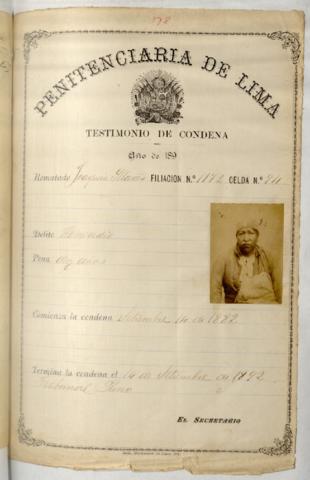 78
PENITENCIARIA DE LIMA
TESTIMONIO DE CONDENA
Año de 189
Rematado Joaquin FILIACION N.º 1172 CELDA N.º 211
Delito Homicidio
Pena diez años
Comienza la condena Setiembre 14 de 1882
Termina la condena el 14 de Setiembre de 1892
EL SECRETARIO